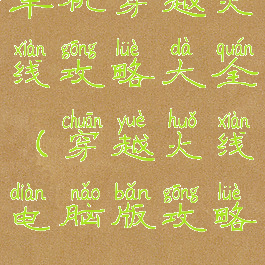 单机穿越火
xiàn gōng lüè dà quán
线攻略大全
chuān yuè huǒ xiàn
（穿越火线
diàn nǎo bǎn gōng lüè
电脑版攻略